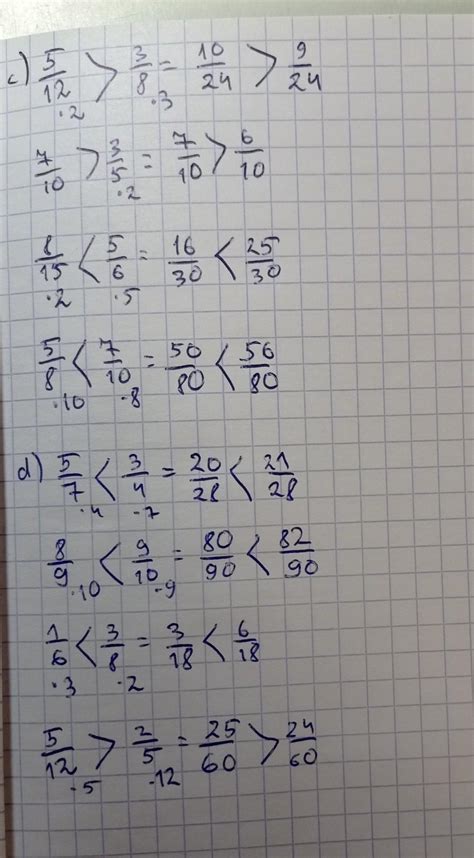 c) 5/12 > 3/8 = 10/24 > 9/24
·2 ·3
7/10 > 3/5 = 7/10 > 6/10
·2
8/15 < 5/6 = 16/30 < 25/30
·2 ·5
5/8 < 7/10 = 50/80 < 56/80
·10 ·8
d) 5/7 < 3/4 = 20/28 < 21/28
·4 ·7
8/9 < 9/10 = 80/90 < 82/90
·10 ·9
1/6 < 3/8 = 3/18 < 6/18
·3 ·2
5/12 > 2/5 = 25/60 > 24/60
·5 ·12